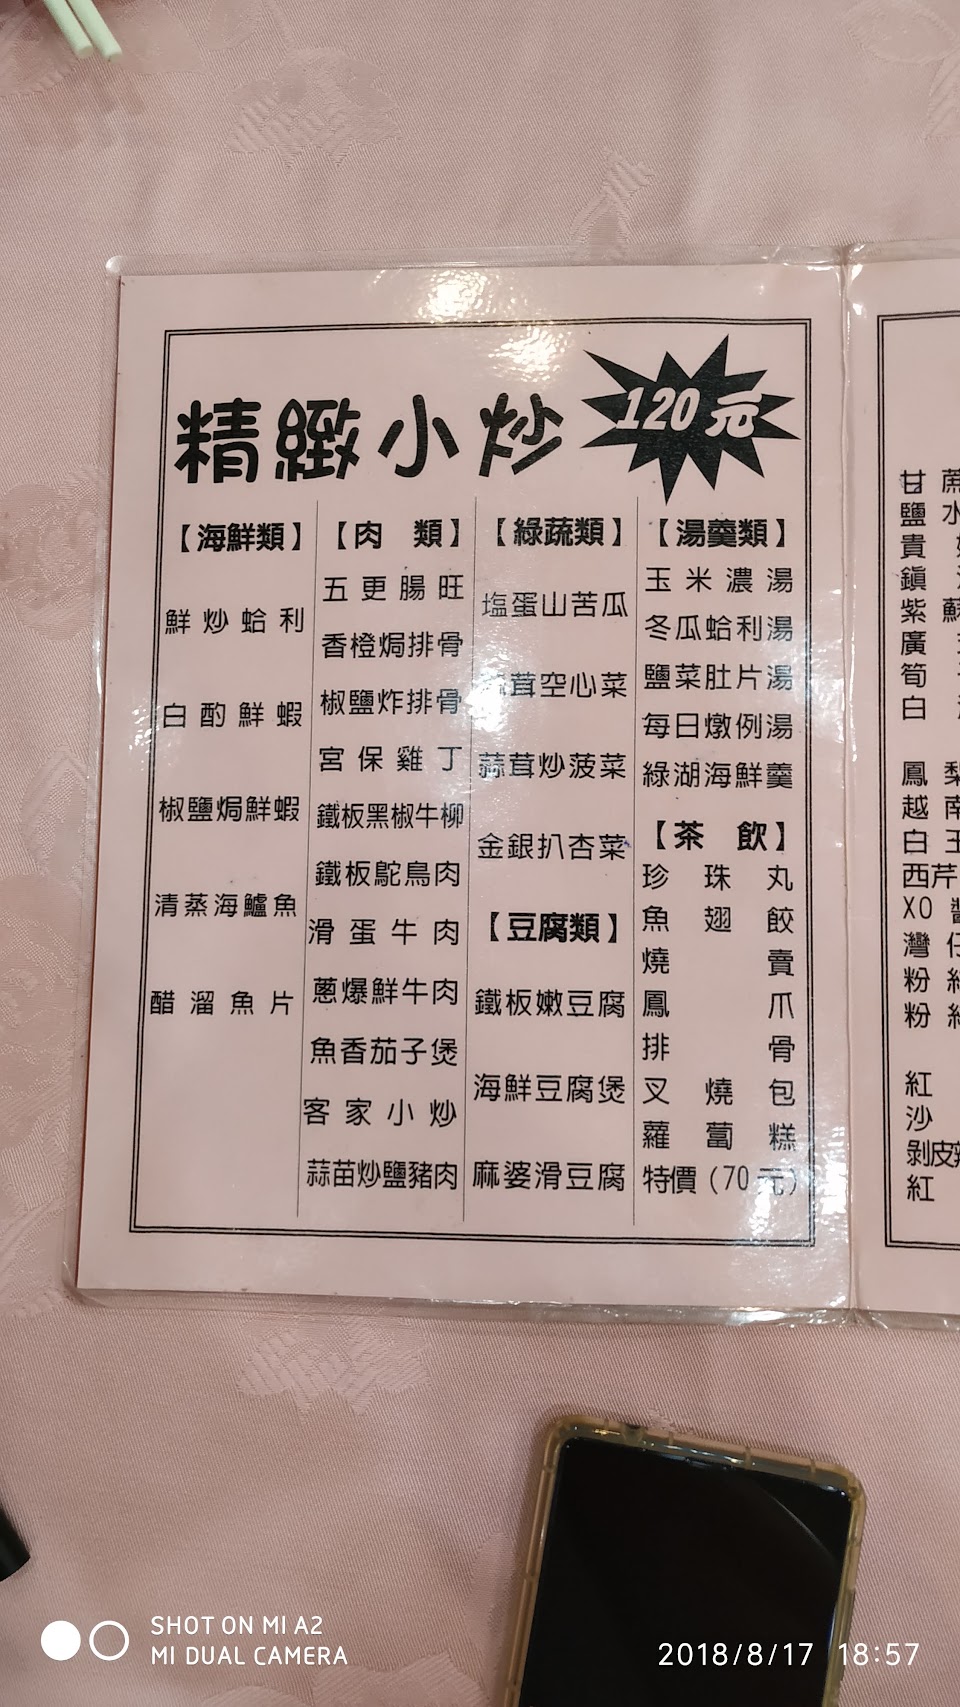 精緻小炒
120元
【海鮮類】
鮮炒蛤利
白酌鮮蝦
椒鹽焗鮮蝦
清蒸海鱸魚
醋溜魚片
【肉 類】
五更腸旺
香橙焗排骨
椒鹽炸排骨
宮保雞丁
鐵板黑椒牛柳
鐵板鴕鳥肉
滑蛋牛肉
蔥爆鮮牛肉
魚香茄子煲
客家小炒
蒜苗炒鹽豬肉
【綠蔬類】
塩蛋山苦瓜
茸空心菜
蒜茸炒菠菜
金銀扒杏菜
【豆腐類】
鐵板嫩豆腐
海鮮豆腐煲
麻婆滑豆腐
【湯羹類】
玉米濃湯
冬瓜蛤利湯
鹽菜肚片湯
每日燉例湯
綠湖海鮮羹
【茶 飲】
珍珠丸
魚翅餃
燒賣
鳳爪
排骨
叉燒包
蘿蔔糕
特價(70元)
甘蔗
鹽水
貴
鎮
紫蘇
廣
筍
白
鳳梨
越南
白玉
西芹
XO醬
灣仔
粉紅
粉紅
紅
沙
剝皮辣
紅
SHOT ON MI A2
MI DUAL CAMERA
2018/8/17 18:57